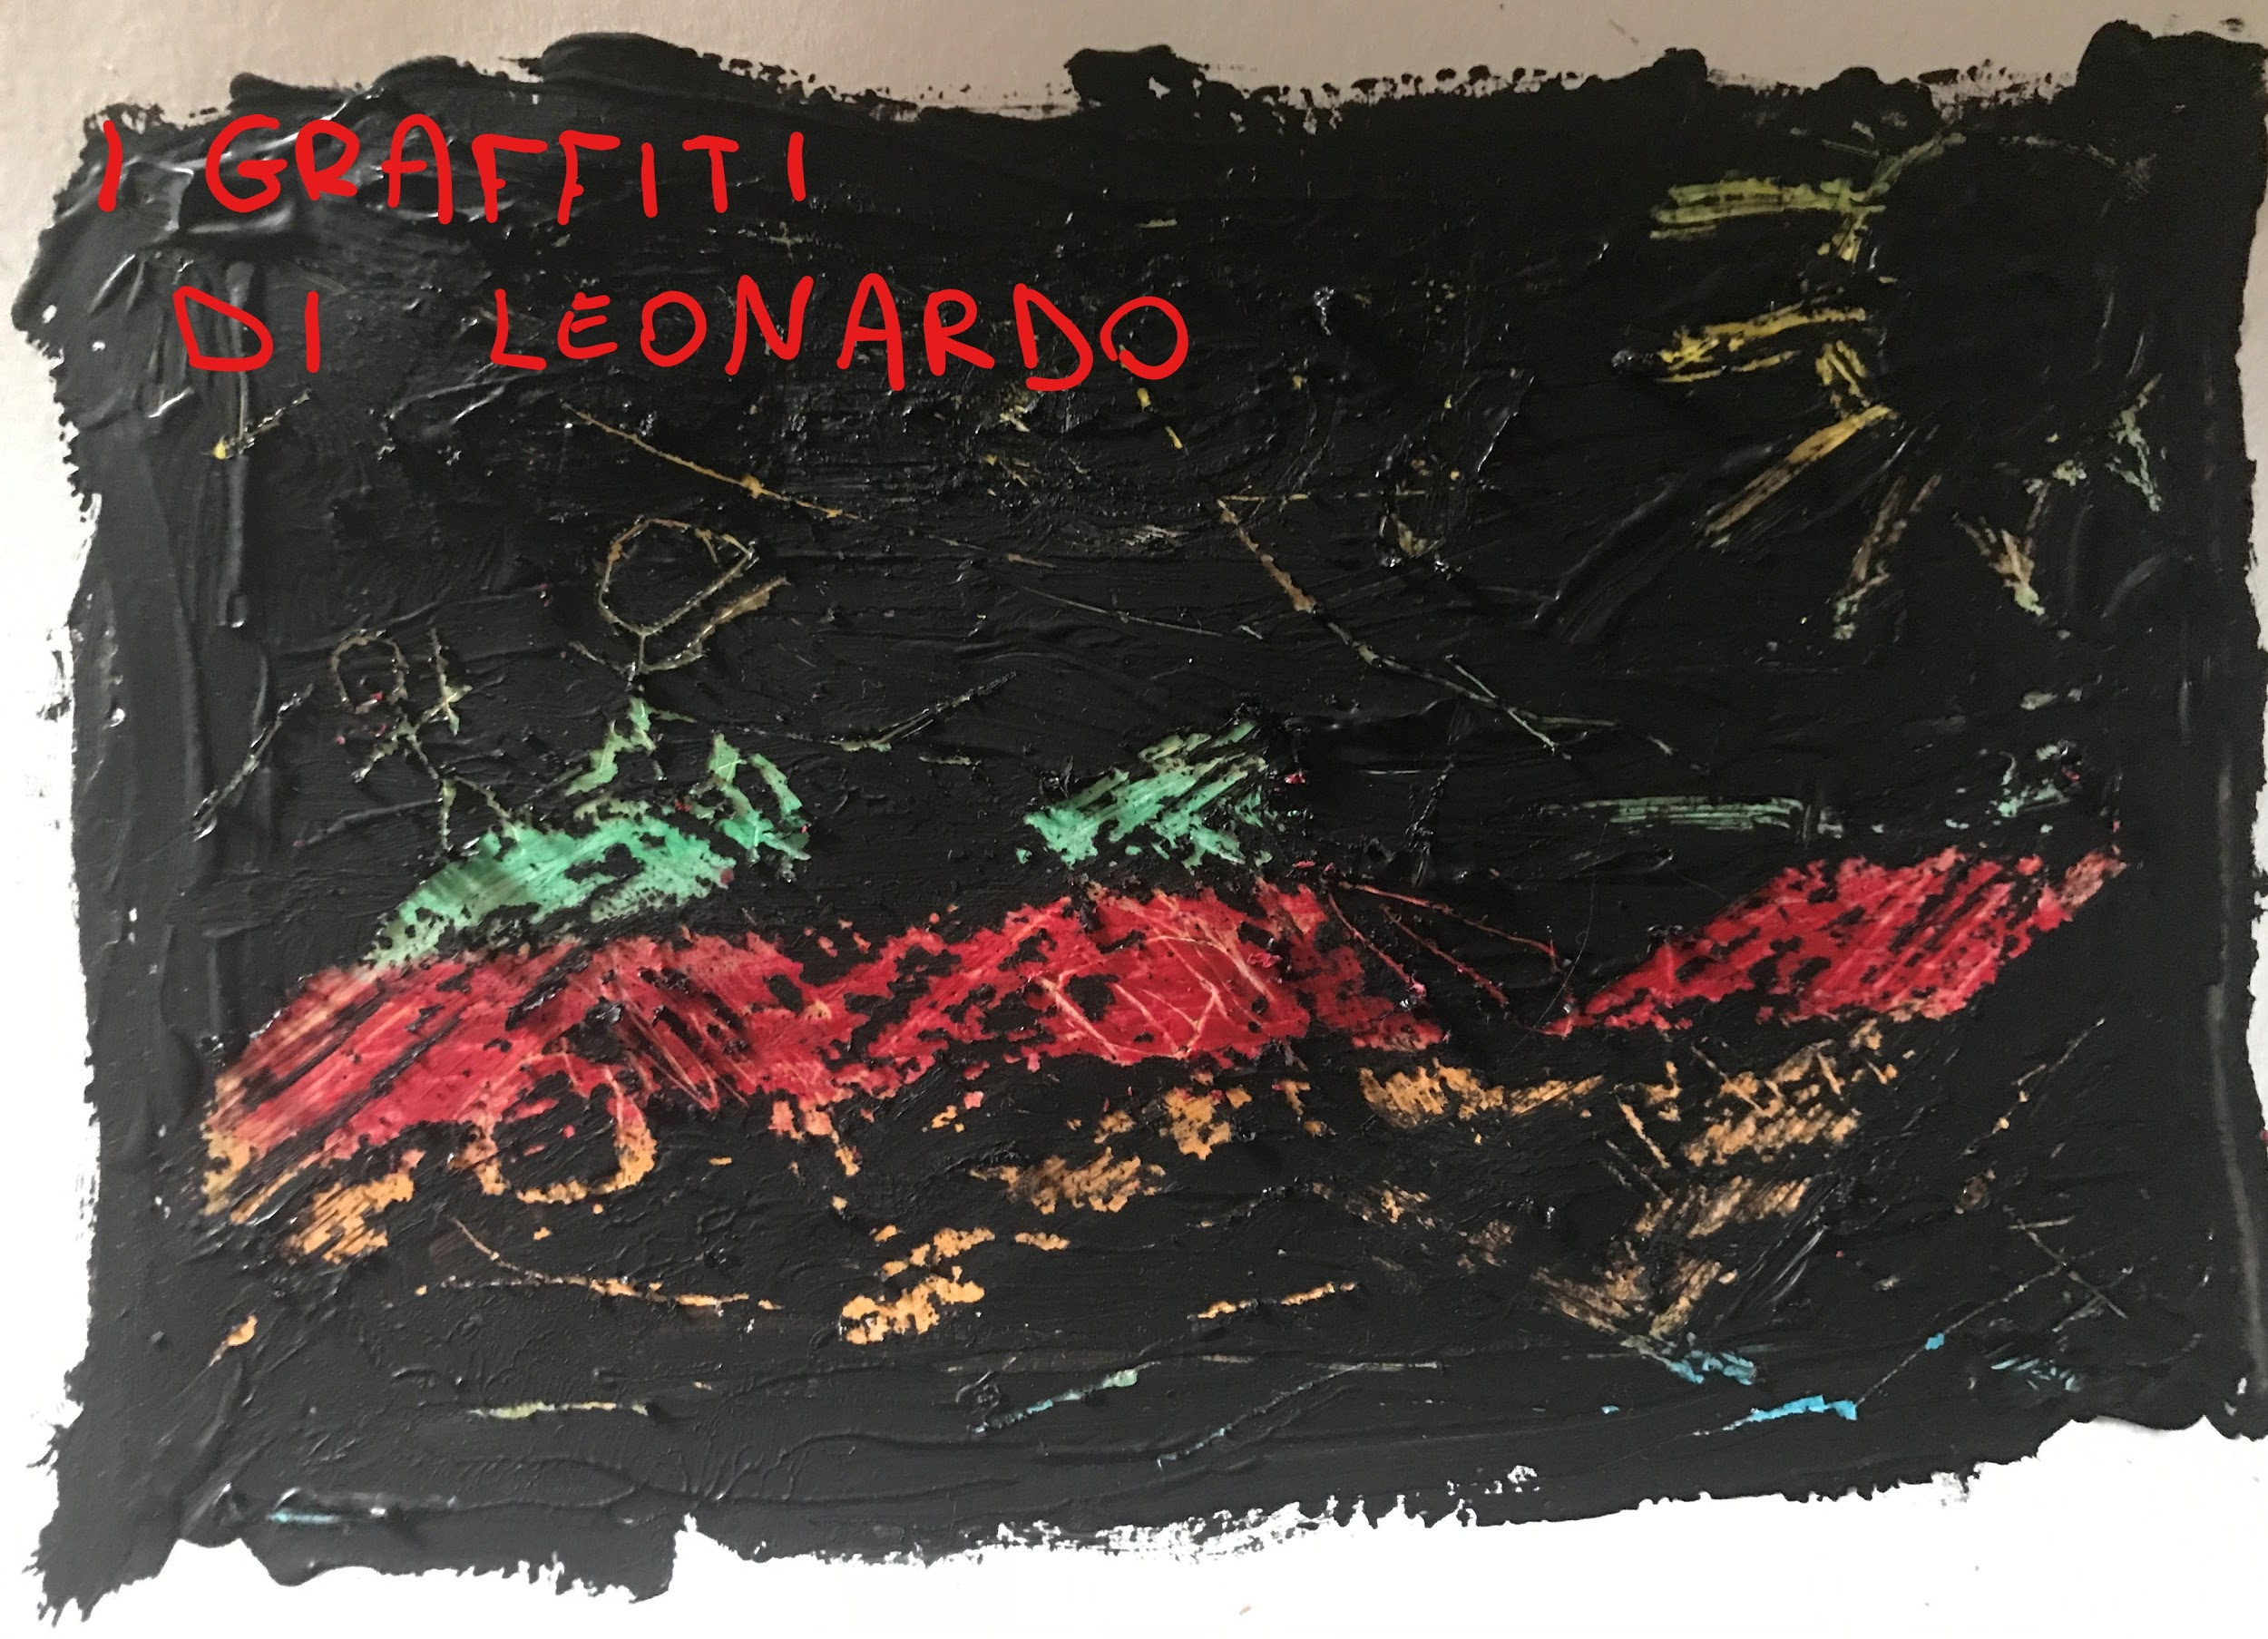 I GRAFFITI
DI LEONARDO